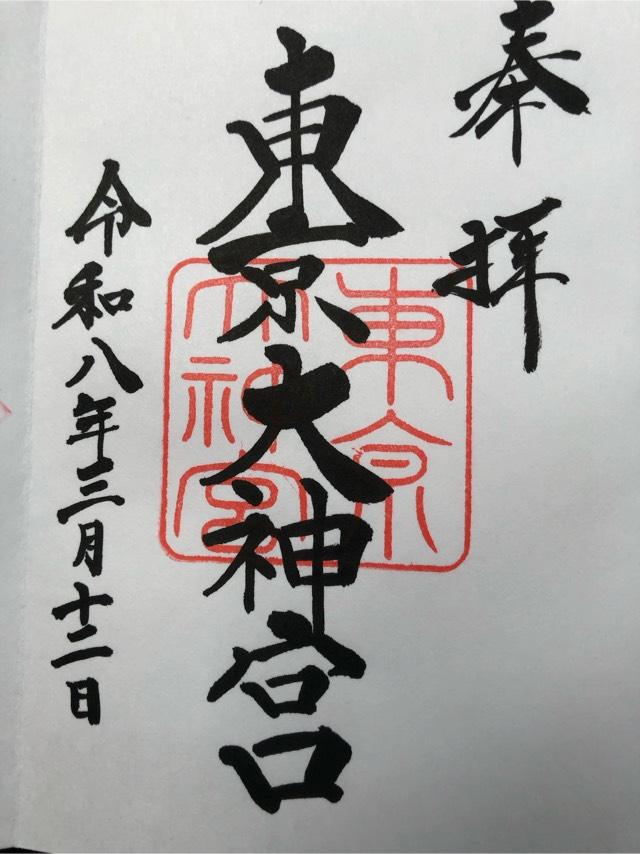 奉拝
東京大神宮
東京大神宮
令和八年三月十二日